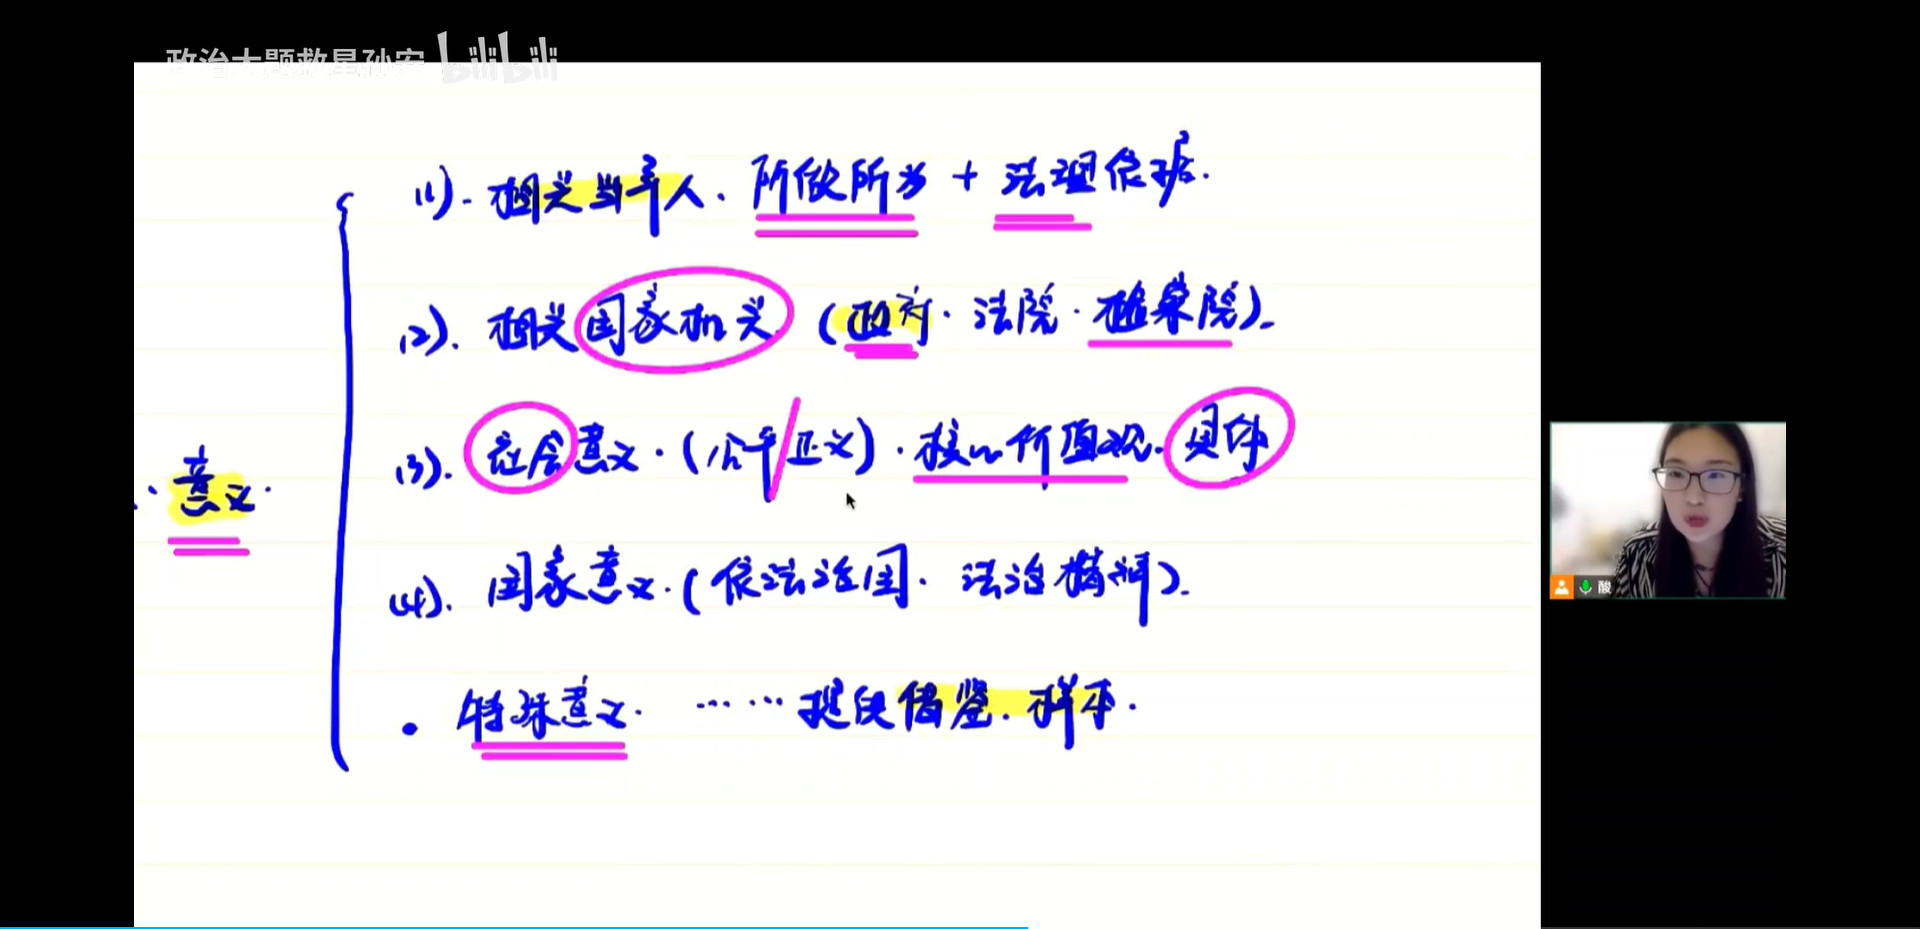 政治大题救星孙安 bilibili
(1). 相关当事人、所做所为 + 法理依据.
(2). 相关国家机关 (政府·法院·检察院).
(3). 社会意义·(公平/正义)·核心价值观.具体
·意义·
(4). 国家意义·(依法治国·法治精神).
·特殊意义·……提供借鉴.样本·
酸